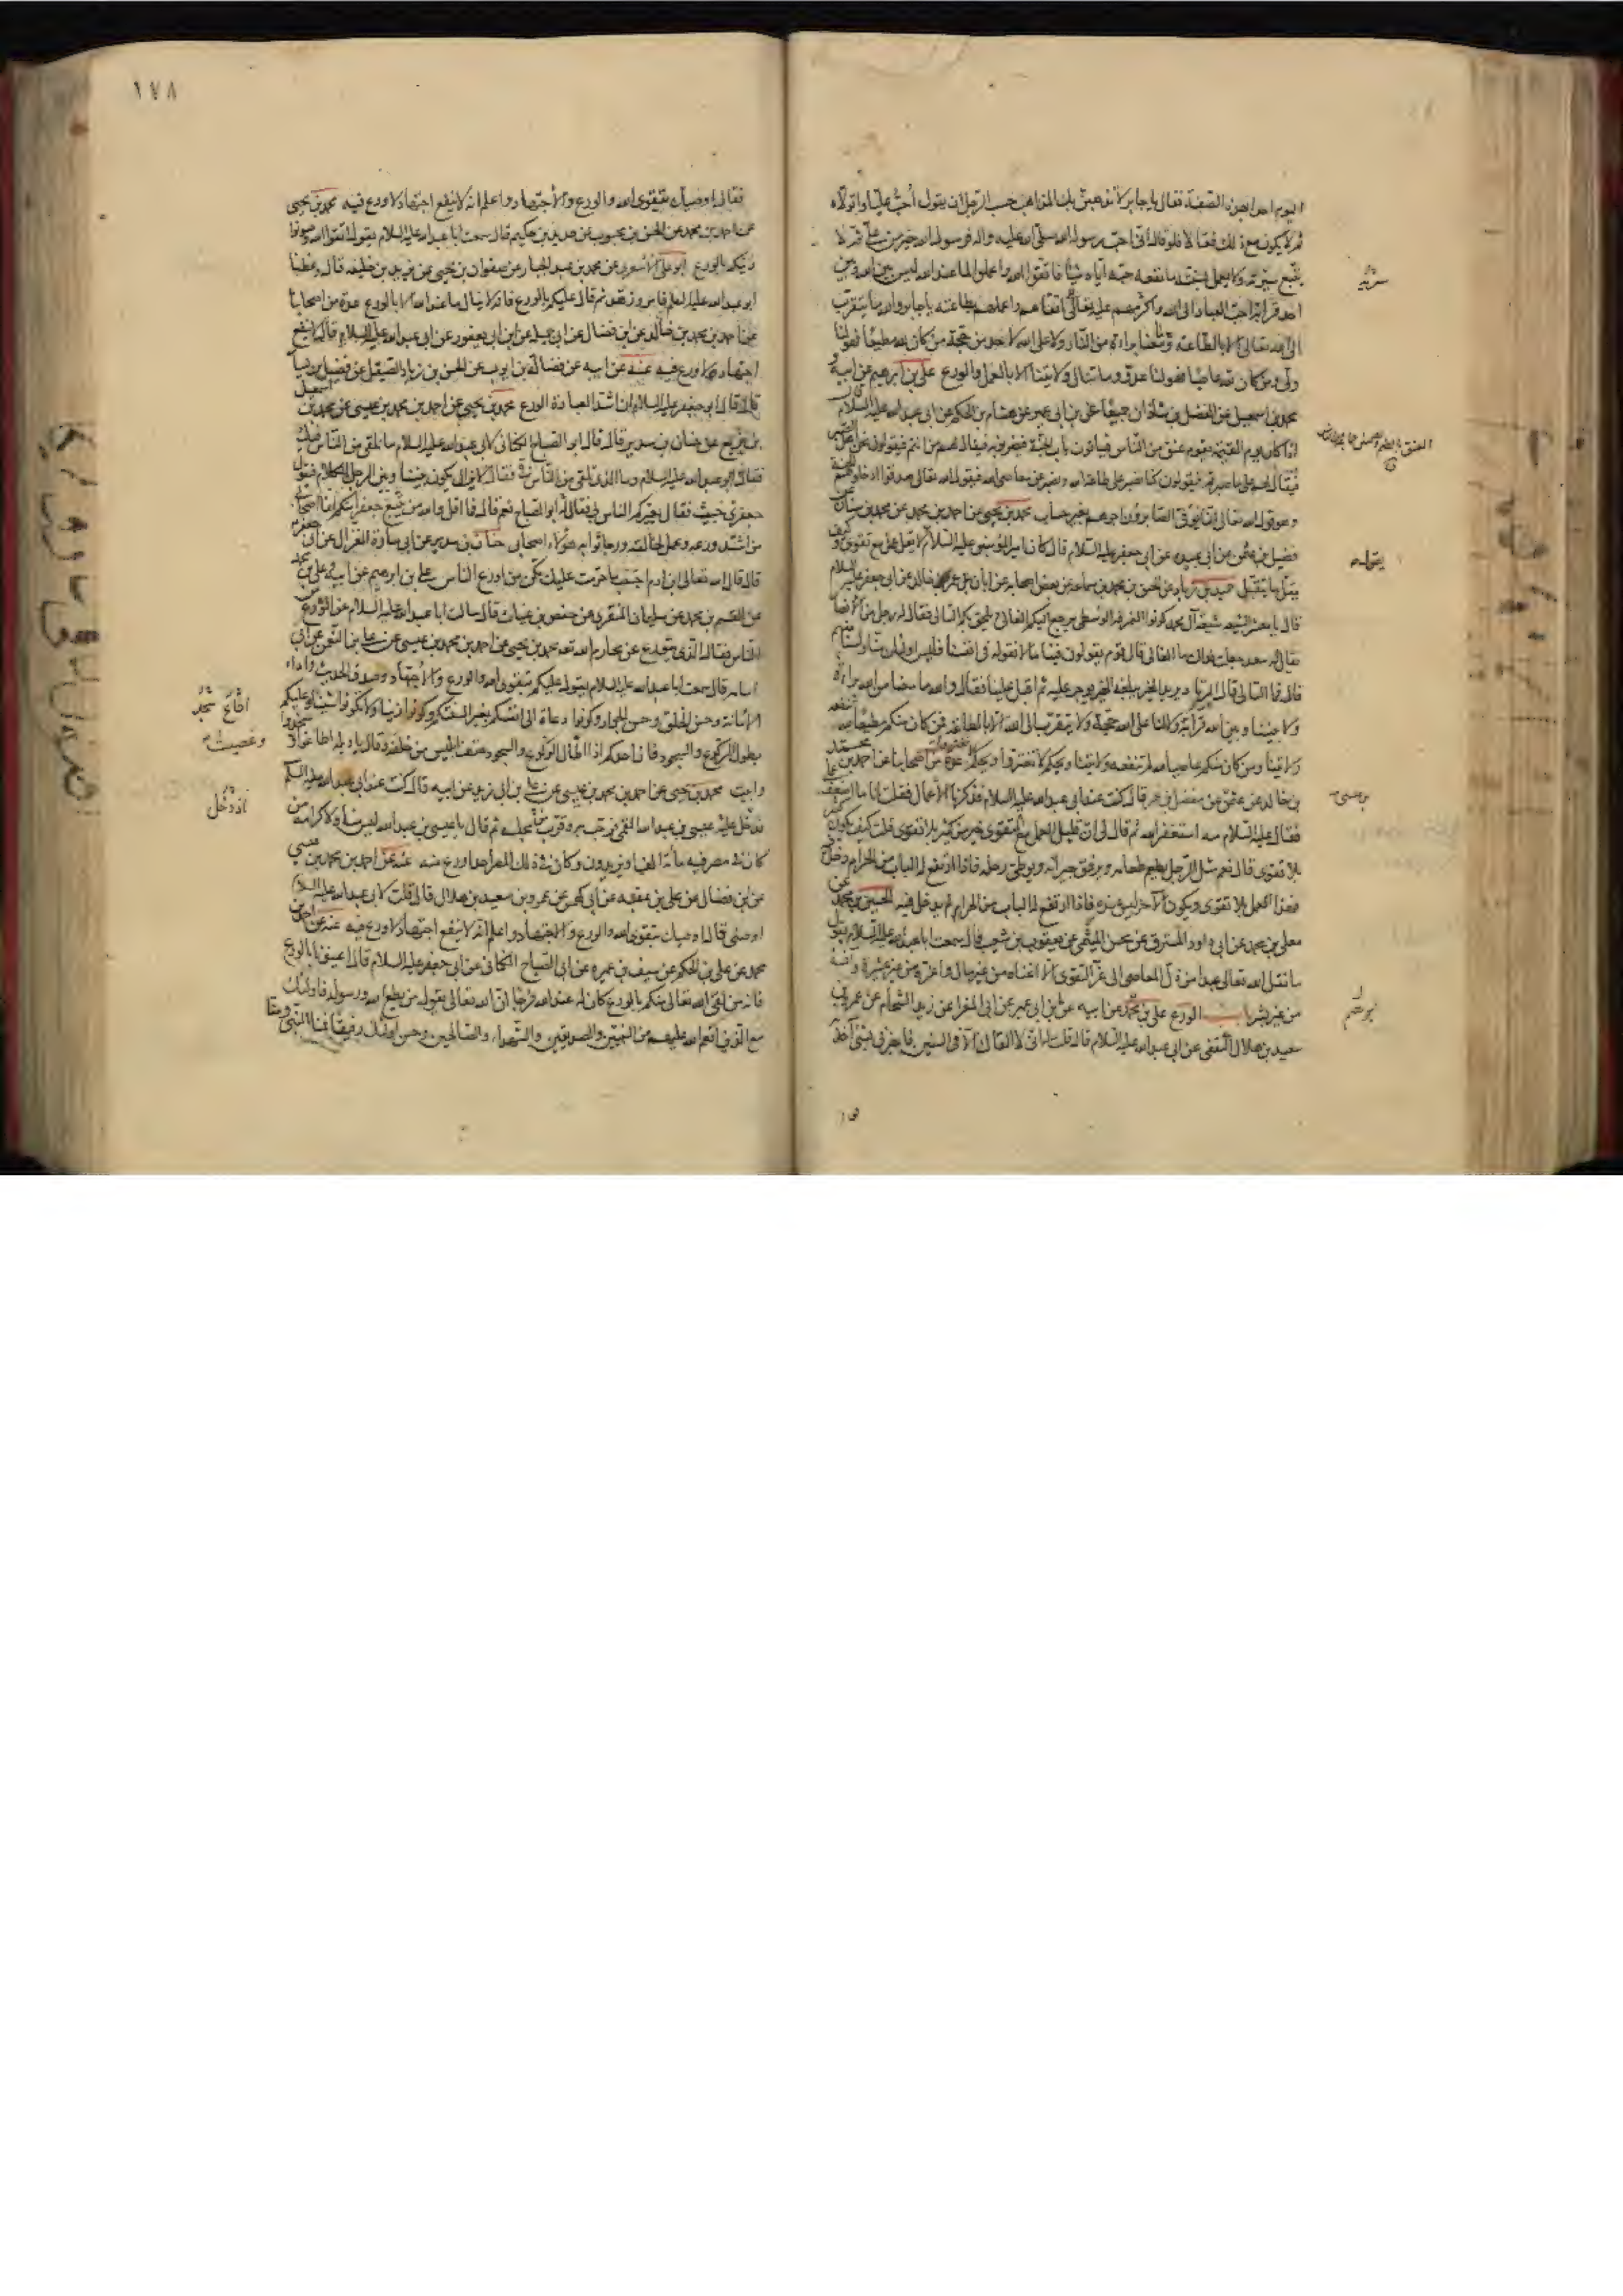 اليوم احدا بهذه الصفة فقال يا جابر لا تذهبن بك المذاهب حسب الرجل ان يقول احب عليا واتولاه
ثم لا يكون مع ذلك فعالا فلو قال انى احب رسول الله فرسول الله صلى الله عليه واله خير من على ثم لا
يتبع سيرته ولا يعمل بسنته ما نفعه حبه اياه شيئا فاتقوا الله واعملوا لما عند الله ليس بين الله وبين
احد قرابة احب العباد الى الله واكرمهم عليه تعالى اتقاهم واعملهم بطاعته يا جابر والله ما يتقرب
الى الله تعالى الا بالطاعة وما معنا براءة من النار ولا على الله لاحد من حجة من كان لله مطيعا فهو لنا
ولى ومن كان لله عاصيا فهو لنا عدو وما تنال ولايتنا الا بالعمل والورع على بن ابرهيم عن ابيه و
محمد بن اسمعيل عن الفضل بن شاذان جميعا عن ابن ابى عمير عن هشام بن الحكم عن ابى عبد الله عليه السلام قال
اذا كان يوم القيمة يقوم عنق من الناس فياتون باب الجنة فيضربونه فيقال لهم من انتم فيقولون نحن اهل الصبر
فيقال لهم على ما صبرتم فيقولون كنا نصبر على طاعة الله ونصبر عن معاصى الله فيقول الله تعالى صدقوا ادخلوهم الجنة
وهو قول الله تعالى انما يوفى الصابرون اجرهم بغير حساب محمد بن يحيى عن احمد بن محمد عن محمد بن سنان عن
فضيل بن عثمن عن ابى عبيده عن ابى جعفر عليه السلام قال كان امير المؤمنين عليه السلام يقول لا يقل عمل مع تقوى وكيف
يقل ما يتقبل حميد بن زياد عن الحسن بن محمد بن سماعه عن بعض اصحابه عن ابان عن عمرو بن خالد عن ابى جعفر عليه السلام
قال يا معشر الشيعه شيعة آل محمد كونوا النمرقة الوسطى يرجع اليكم الغالى ويلحق بكم التالى فقال له رجل من الانصار
يقال له سعد جعلت فداك ما الغالى قال قوم يقولون فينا ما لا نقوله فى انفسنا فليس اولئك منا ولسنا منهم
قال فما التالى قال المرتاد يريد الخير يبلغه الخير يوجر عليه ثم اقبل علينا فقال والله ما معنا من الله براءة
ولا بيننا وبين الله قرابة ولا لنا على الله حجة ولا يتقرب الى الله الا بالطاعة فمن كان منكم مطيعا لله تنفعه
ولايتنا ومن كان منكم عاصيا لله لم تنفعه ولايتنا ويحكم لا تغتروا ويحكم لا تغتروا عدة من اصحابنا عن احمد بن محمد
بن خالد عن عثمن عن مفضل بن عمر قال كنت عند ابى عبد الله عليه السلام فذكرنا الاعمال فقلت انا ما اضعف عملى
فقال عليه السلام مه استغفر الله ثم قال لى ان قليل العمل مع التقوى خير من كثير بلا تقوى قلت كيف يكون كثير
بلا تقوى قال نعم مثل الرجل يطعم طعامه ويرفق جيرانه ويوطئ رحله فاذا ارتفع له الباب من الحرام دخل فيه
فهذا العمل بلا تقوى ويكون الآخر ليس عنده فاذا ارتفع له الباب من الحرام لم يدخل فيه الحسين بن محمد عن
معلى بن محمد عن ابى داود المسترق عن محسن الميثمى عن يعقوب بن شعيب قال سمعت ابا عبد الله عليه السلام يقول
ما نقل الله تعالى عبدا من ذل المعاصى الى عز التقوى الا اغناه من غير مال واعزه من غير عشيرة وآنسه
من غير بشر باب الورع على بن محمد عن ابيه عن ابن ابى عمير عن ابى المغرا عن زيد الشحام عن عمرو بن
سعيد بن هلال الثقفى عن ابى عبد الله عليه السلام قال قلت له انى لا القاك الا فى السنين فاخبرنى بشئ آخذ به
١٧٨
فقال اوصيك بتقوى الله والورع والاجتهاد واعلم انه لا ينفع اجتهاد لا ورع فيه محمد بن يحيى
عن احمد بن محمد عن الحسن بن محبوب عن حديد بن حكيم قال سمعت ابا عبد الله عليه السلام يقول اتقوا الله وصونوا
دينكم بالورع ابو على الاشعرى عن محمد بن عبد الجبار عن صفوان بن يحيى عن يزيد بن خليفه قال وعظنا
ابو عبد الله عليه السلم فامر وزهد ثم قال عليكم بالورع فانه لا ينال ما عند الله الا بالورع عدة من اصحابنا
عن احمد بن محمد بن خالد عن ابن فضال عن ابى جميله عن ابن ابى يعفور عن ابى عبد الله عليه السلام قال لا ينفع
اجتهاد لا ورع فيه عنه عن ابيه عن فضالة بن ايوب عن الحسن بن زياد الصيقل عن فضيل بن يسار
قال قال ابو جعفر عليه السلام ان اشد العبادة الورع محمد بن يحيى عن احمد بن محمد بن عيسى عن محمد بن اسمعيل
بن بزيع عن حنان بن سدير قال قال ابو الصباح الكنانى لابى عبد الله عليه السلام ما نلقى من الناس فيك
فقال ابو عبد الله عليه السلام وما الذى تلقى من الناس فى فقال لا يزال يكون بيننا وبين الرجل الكلام فيقول
جعفرى خبيث فقال يعيركم الناس بى فقال له ابو الصباح نعم قال فما اقل والله من يتبع جعفرا منكم انما اصحابى
من اشتد ورعه وعمل لخالقه ورجا ثوابه هؤلاء اصحابى حنان بن سدير عن ابى سارة الغزال عن ابى جعفر
قال قال الله تعالى ابن ادم اجتنب ما حرمت عليك تكن من اورع الناس على بن ابرهيم عن ابيه وعلى بن محمد
عن القسم بن محمد عن سليمان المنقرى عن حفص بن غياث قال سالت ابا عبد الله عليه السلام عن الورع من
الناس فقال الذى يتورع عن محارم الله تعه محمد بن يحيى عن احمد بن محمد بن عيسى عن على بن النعمن عن ابى
اسامه قال سمعت ابا عبد الله عليه السلام يقول عليكم بتقوى الله والورع والاجتهاد وصدق الحديث واداء
الامانة وحسن الخلق وحسن الجوار وكونوا دعاة الى انفسكم بغير السنتكم وكونوا زينا ولا تكونوا شينا وعليكم
بطول الركوع والسجود فان احدكم اذا اطال الركوع والسجود هتف ابليس من خلفه وقال يا ويله اطاع
وابيت محمد بن يحيى عن احمد بن محمد بن عيسى عن على بن ابى زيد عن ابيه قال كنت عند ابى عبد الله عليه السلم
فدخل عليه عيسى بن عبد الله القمى فرحب به وقرب مجلسه ثم قال يا عيسى بن عبد الله ليس منا ولا كرامة من
كان فى مصر فيه مائة الف او يزيدون وكان فى ذلك المصر احد اورع منه عنه عن احمد بن محمد بن عيسى
عن ابن فضال عن على بن عقبه عن ابى كهمس عن عمرو بن سعيد بن هلال قال قلت لابى عبد الله عليه السلام
اوصنى قال اوصيك بتقوى الله والورع والاجتهاد واعلم انه لا ينفع اجتهاد لا ورع فيه عنه عن احمد بن
محمد عن على بن الحكم عن سيف بن عميره عن ابى الصباح الكنانى عن ابى جعفر عليه السلام قال اعينونا بالورع
فانه من لقى الله تعالى منكم بالورع كان له عند الله فرجا ان الله تعالى يقول من يطع الله ورسوله فاولئك
مع الذين انعم الله عليهم من النبيين والصديقين والشهداء والصالحين وحسن اولئك رفيقا فمنا النبى ومنا